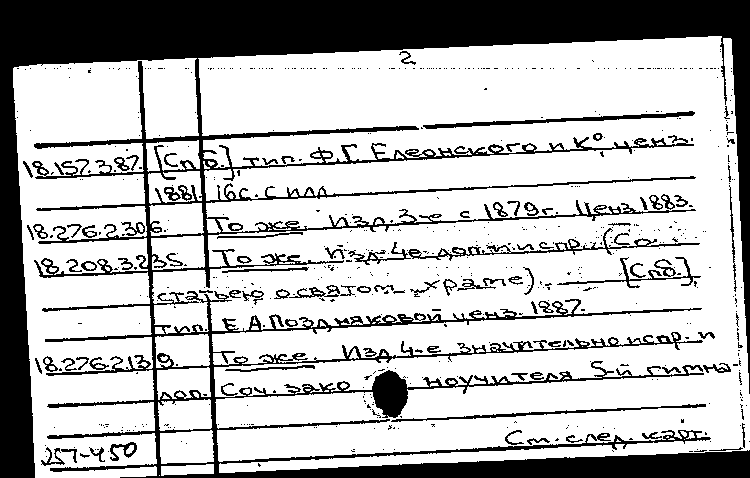 2
18.157.3.87. [Спб.], тип. Ф.Г. Елеонского и К°, ценз.
1881. 16 с. с илл.
18.276.2.306. То же. Изд. 3-е с 1879 г. Ценз. 1883.
18.208.3.235. То же. Изд. 4-е доп. и испр. (Со
статьею о святом храме). [Спб.],
тип. Е.А. Поздняковой, ценз. 1887.
18.276.2.139. То же. Изд. 4-е, значительно испр. и
доп. Соч. зако ноучителя 5-й гимна-
257-450 См. след. карт.